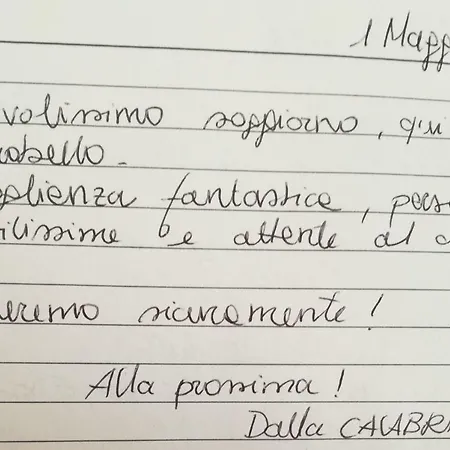 1 Magg
volissimo soggiorno, qui
obello.
glienza fantastica, pers
ilissime e attente al c
eremo sicuramente!
Alla prossima!
Dalla CALABR